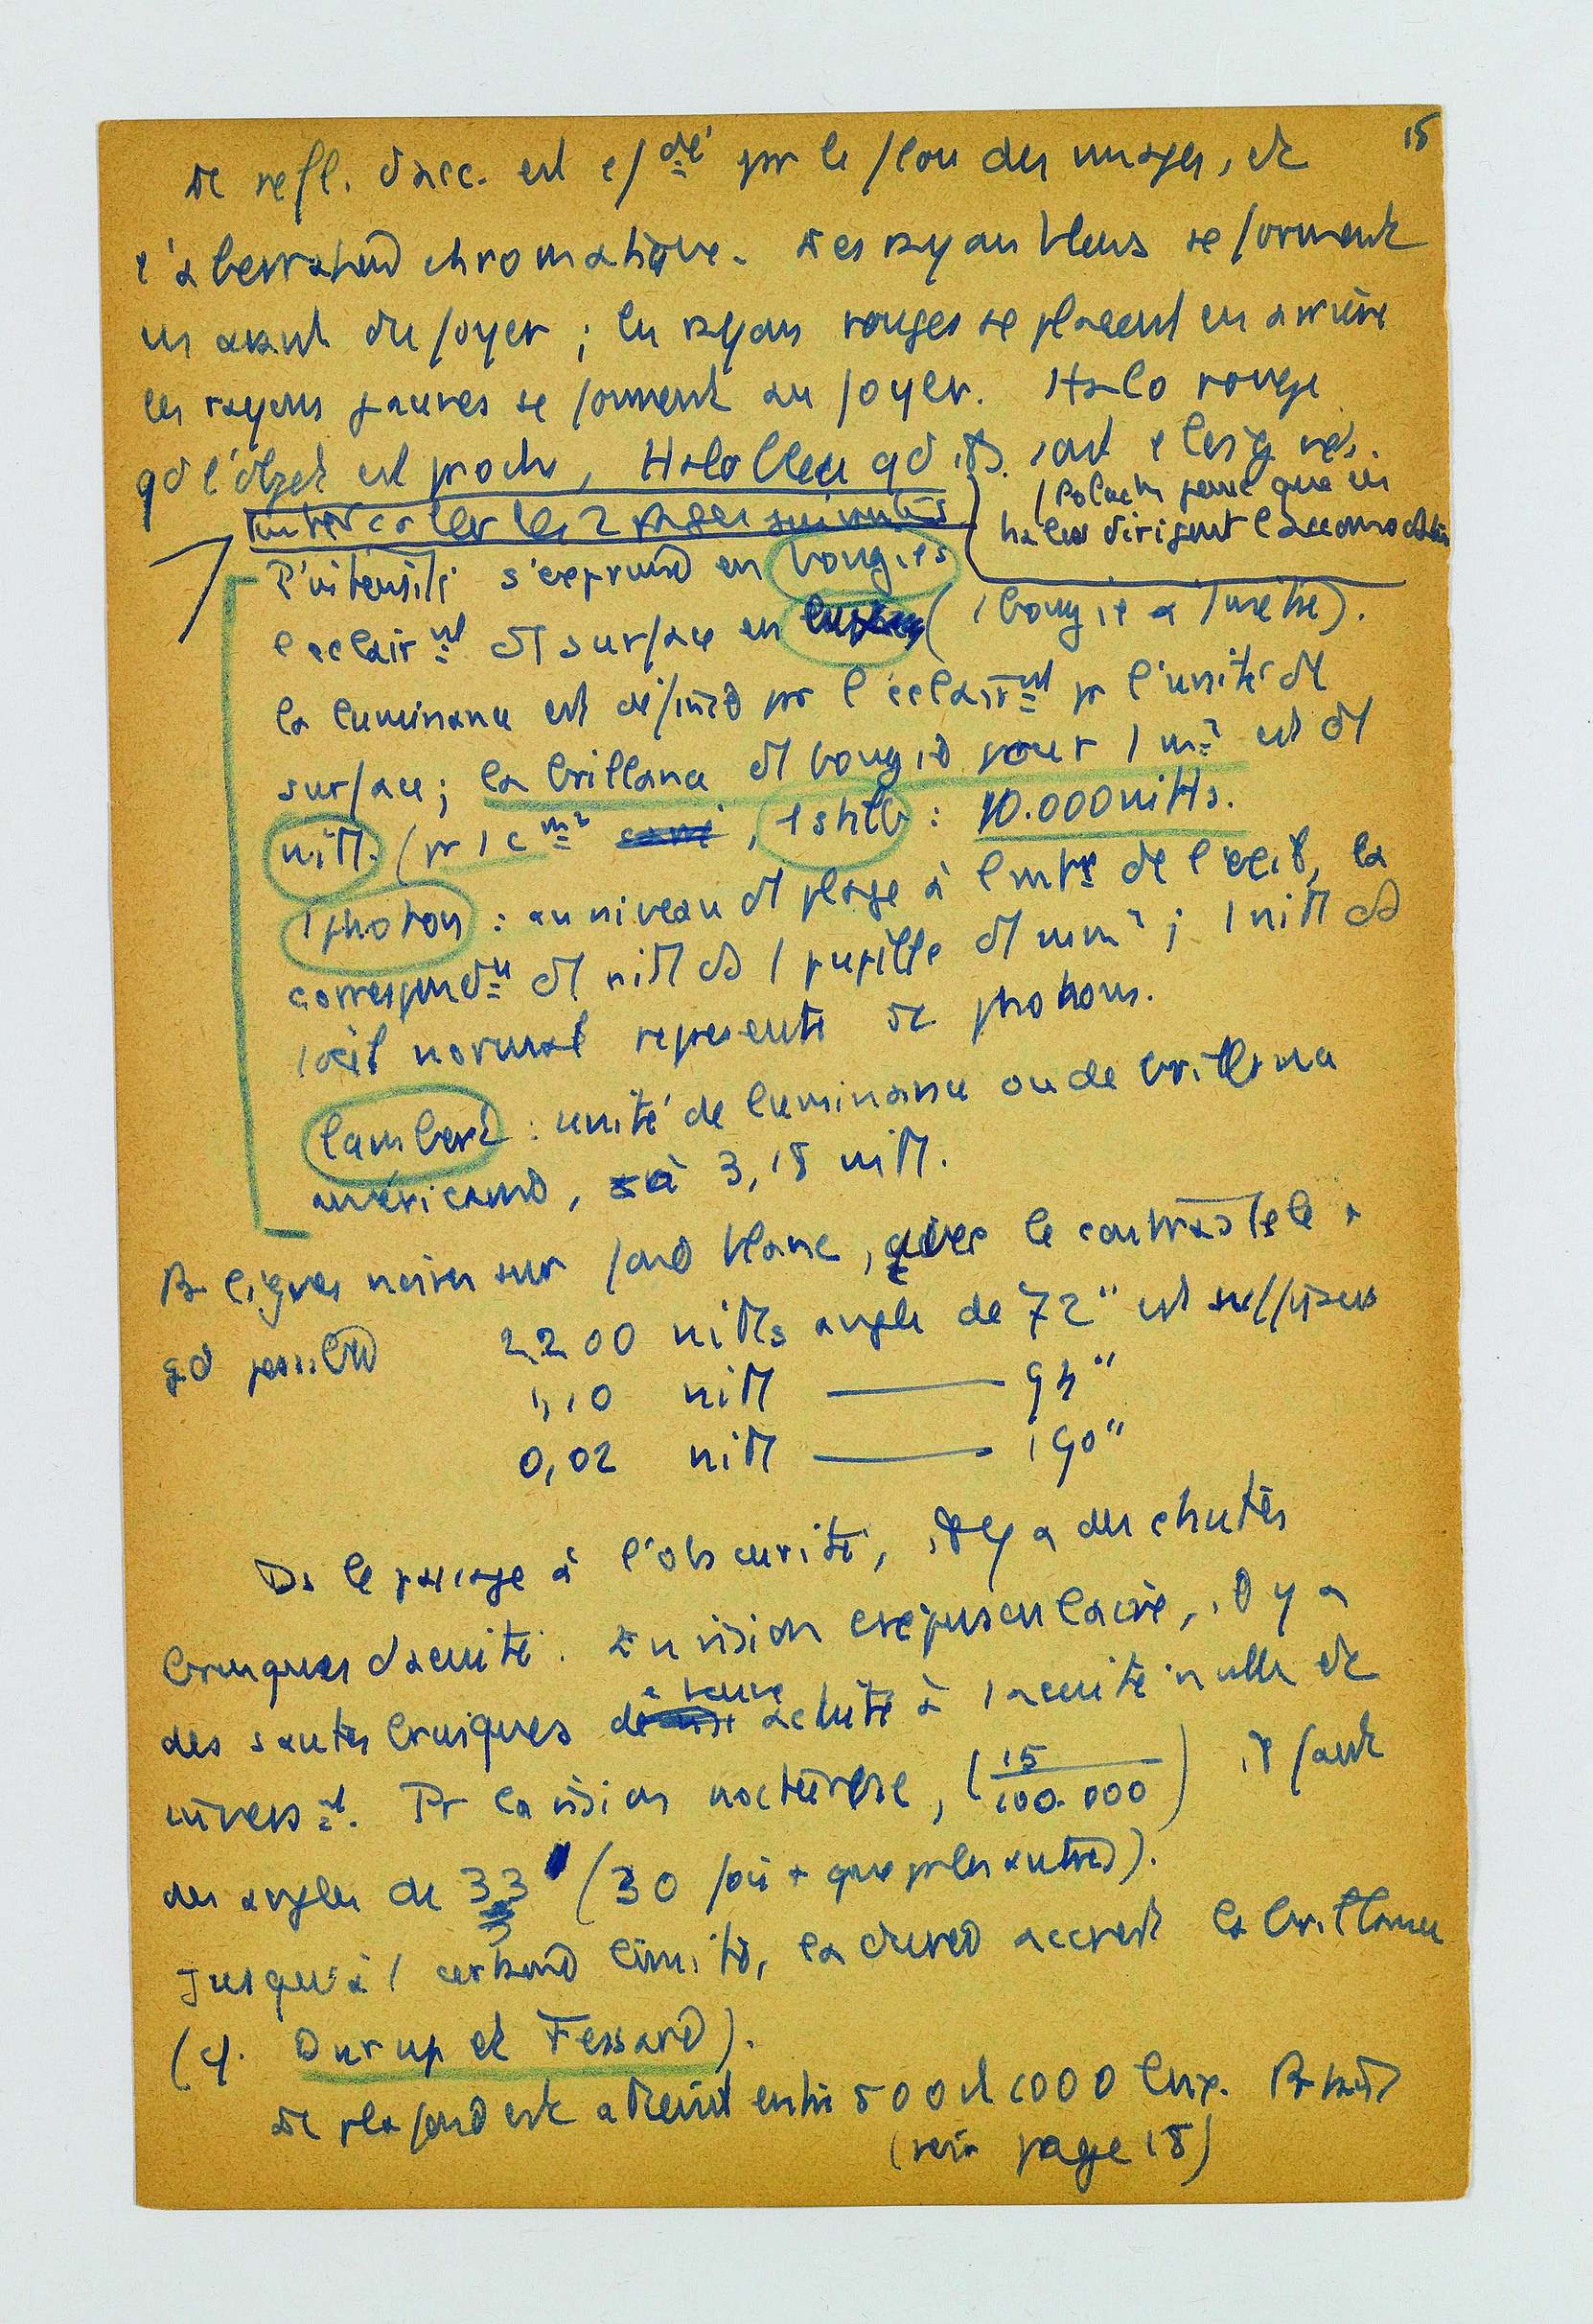 15
Le refl. d'acc. est c/dé pr le flou des images, et
l'aberration chromatique. Les rayons bleus se forment
en avant du foyer ; les rayons rouges se placent en arrière
les rayons jaunes se forment au foyer. Halo rouge
qd l'objet est proche, Halo bleu qd ils sont éloignés.
(Polack pense que ces
halos dirigent l'accomodation
Intercaler les 2 pages suivantes
L'intensité s'exprime en bougies
l'éclairnt dt surface en luxes (1 bougie à 1 mètre).
la luminance est définie pr l'éclairnt pr l'unité dt
surface ; la brillance dt bougie pour 1 m2 est dt
nitt. (pr 1 cm2, 1 stilb : 10.000 nitts.
1 photon : au niveau dt plage à de l'œil, la
correspondce dt nitt ds 1 pupille dt mm2 ; 1 nitt ds
1 œil normal représente de photons.
lambert : unité de luminance ou de brillance
américaine, à 3,18 nitt.
Pr lignes noires sur fond blanc, avec le contraste le +
gd possible 2200 nitts angle de 72" est suffisant
1,10 nitt —— 94"
0,02 nitt —— 190"
Ds le passage à l'obscurité, il y a des chutes
brusques d'acuité. En vision crépusculaire, il y a
des sautes brusques de acuité à 1 acuité nulle et
inverst. Pr la vision nocturne, (15/100.000) il faut
des angles de 33' (30 fois + que pr les autres).
Jusqu'à 1 certaine limite, la durée accroît la brillance
(cf. Durup et Fessard).
Le plafond est atteint entre 500 et 1000 lux.
(voir page 18)